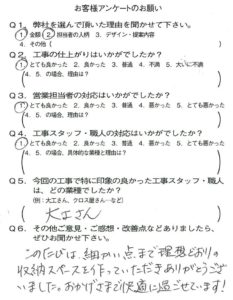 お客様アンケートのお願い
Q1. 弊社を選んで頂いた理由を聞かせて下さい。
1. 金額 2. 担当者の人柄 3. デザイン・提案内容
4. その他(
Q2. 工事の仕上がりはいかがでしたか?
1. とても良かった 2. 良かった 3. 普通 4. 不満 5. 大いに不満
4. 5. の場合、理由は?
Q3. 営業担当者の対応はいかがでしたか?
1. とても良かった 2. 良かった 3. 普通 4. 悪かった 5. とても悪かった
4. 5. の場合、理由は?
Q4. 工事スタッフ・職人の対応はいかがでしたか?
1. とても良かった 2. 良かった 3. 普通 4. 悪かった 5. とても悪かった
4. 5. の場合、具体的な業種と理由は?
Q5. 今回の工事で特に印象の良かった工事スタッフ・職人
は、どの業種でしたか?
(例:大工さん、クロス屋さん…など)
大工さん
Q6. その他ご意見・ご感想・改善点などありましたら、
ぜひお聞かせ下さい。
このたびは、細かい点まで理想どおりの
収納スペースを作っていただきありがとうござ
いました。おかげさまで快適に過ごせています!